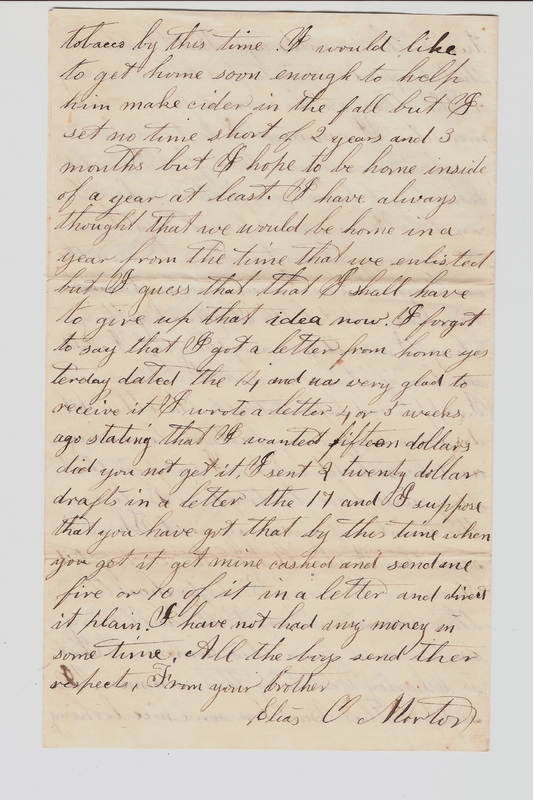 tobacco by this time. I would like
to get home soon enough to help
him make cider in the fall but I
set no time short of 2 years and 3
months but I hope to be home inside
of a year at least. I have always
thought that we would be home in a
year from the time that we enlisted
but I guess that that I shall have
to give up that idea now. I forgot
to say that I got a letter from home yes
terday dated the 4 and was very glad to
receive it I wrote a letter 4 or 5 weeks
ago stating that I wanted fifteen dollars
did you not get it. I sent 2 twenty dollar
drafts in a letter the 17 and I suppose
that you have got that by this time when
you get it get mine cashed and send me
five or 10 of it in a letter and direct
it plain. I have not had any money in
some time. All the boys send ther
respects, From your brother
Elias O Morton